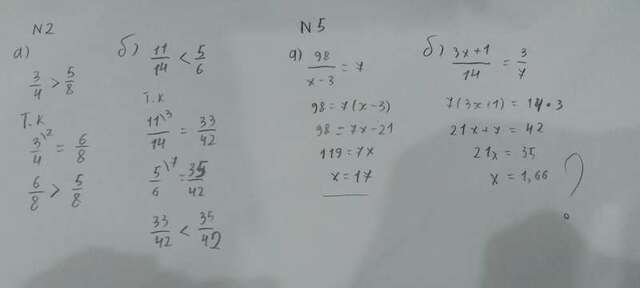 N2
а)
3/4 > 5/8
Т.К
3\2/4 = 6/8
6/8 > 5/8
б) 11/14 < 5/6
Т.К
11\3/14 = 33/42
5\7/6 = 35/42
33/42 < 35/42
N5
а) 98/x-3 = 7
98 = 7(x-3)
98 = 7x-21
119 = 7x
x = 17
б) 3x+1/14 = 3/7
7(3x+1) = 14•3
21x+7 = 42
21x = 35
x = 1,66 ?